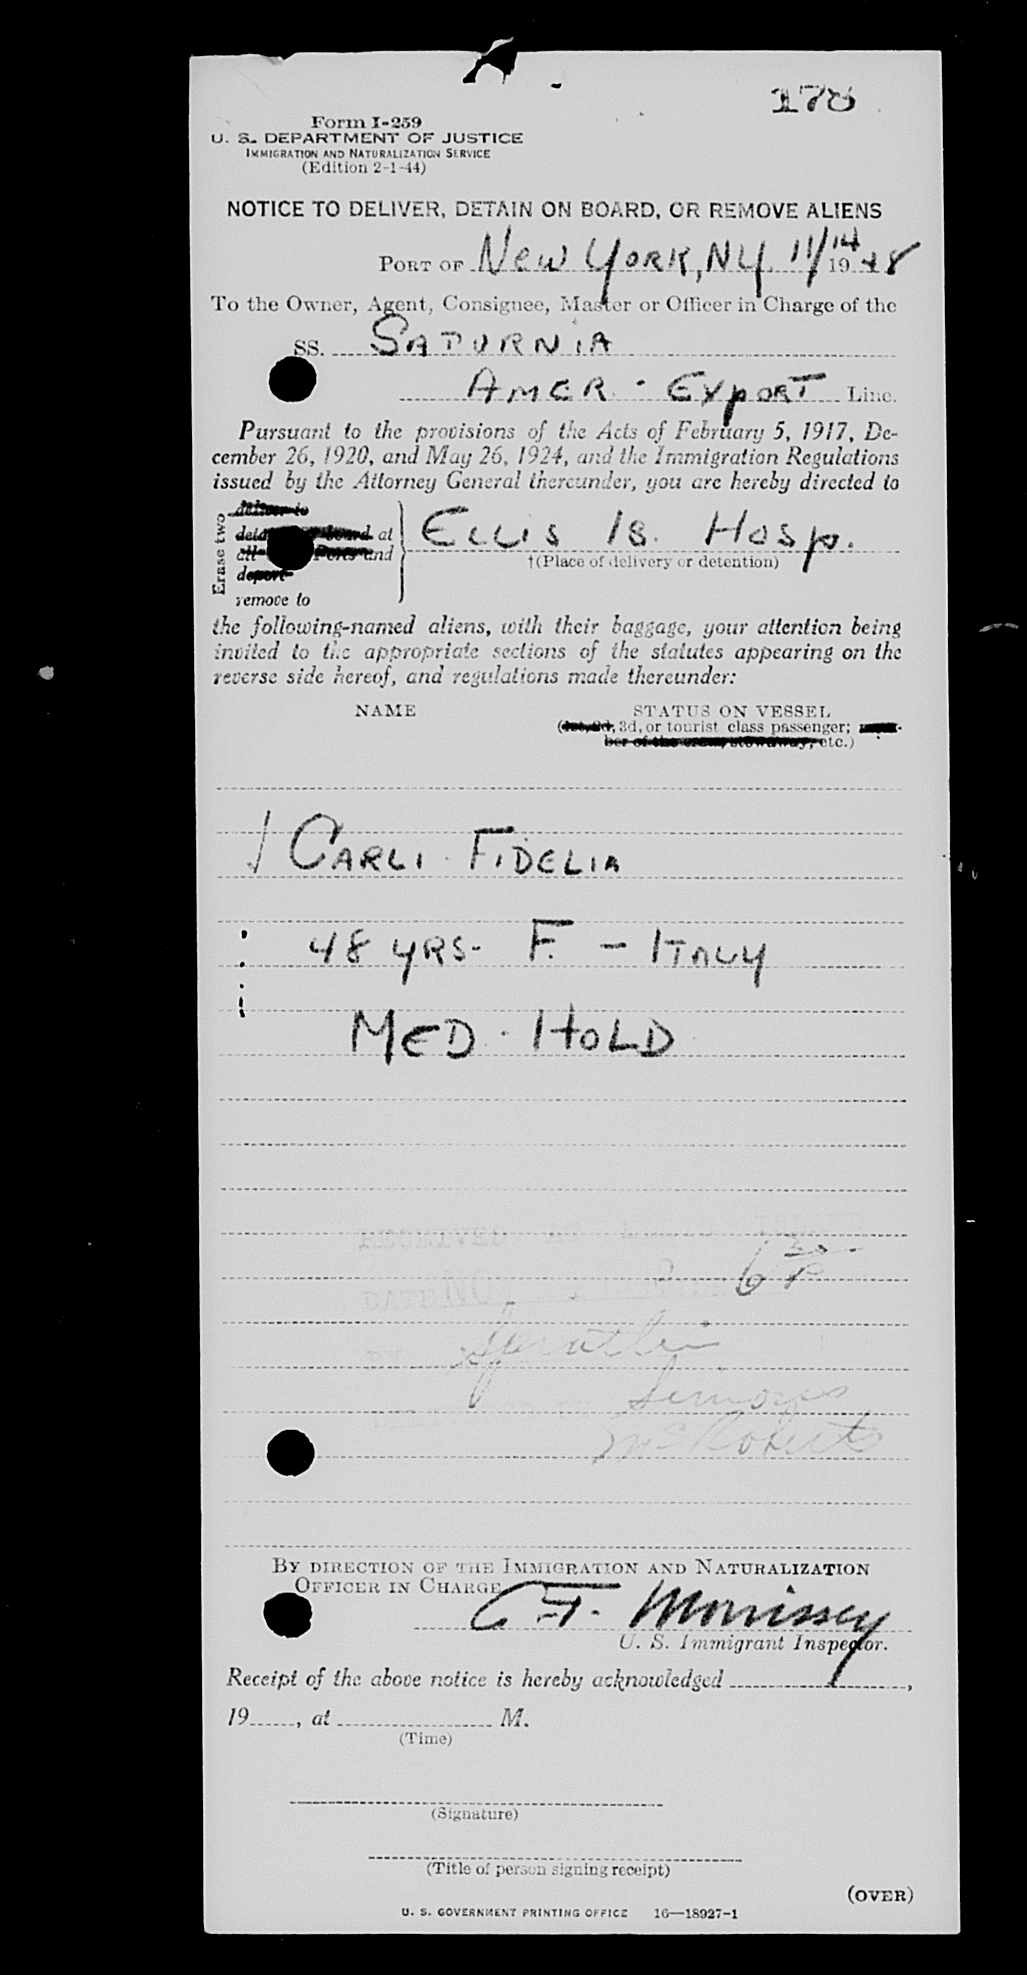 178
Form I-259
U. S. DEPARTMENT OF JUSTICE
IMMIGRATION AND NATURALIZATION SERVICE
(Edition 2-1-44)
NOTICE TO DELIVER, DETAIN ON BOARD, OR REMOVE ALIENS
PORT OF New York, NY. 11/14 1948
To the Owner, Agent, Consignee, Master or Officer in Charge of the
SS. SATURNIA
AMER - EXPORT Line.
Pursuant to the provisions of the Acts of February 5, 1917, De-
cember 26, 1920, and May 26, 1924, and the Immigration Regulations
issued by the Attorney General thereunder, you are hereby directed to
Erase two
deliver to
at
and
deport
remove to
ELLIS IS. HOSP.
†(Place of delivery or detention)
the following-named aliens, with their baggage, your attention being
invited to the appropriate sections of the statutes appearing on the
reverse side hereof, and regulations made thereunder:
NAME STATUS ON VESSEL
(1st, 2d, 3d, or tourist class passenger; mem-
ber of the crew, stowaway, etc.)
CARLI FIDELIA
48 YRS - F. - ITALY
MED. HOLD
RECEIVED
DATE NOV
Simoes
McRoberts
BY DIRECTION OF THE IMMIGRATION AND NATURALIZATION
OFFICER IN CHARGE
C F. Morrissey
U. S. Immigrant Inspector.
Receipt of the above notice is hereby acknowledged ,
19 , at M.
(Time)
(Signature)
(Title of person signing receipt)
(OVER)
U. S. GOVERNMENT PRINTING OFFICE 16—18927-1